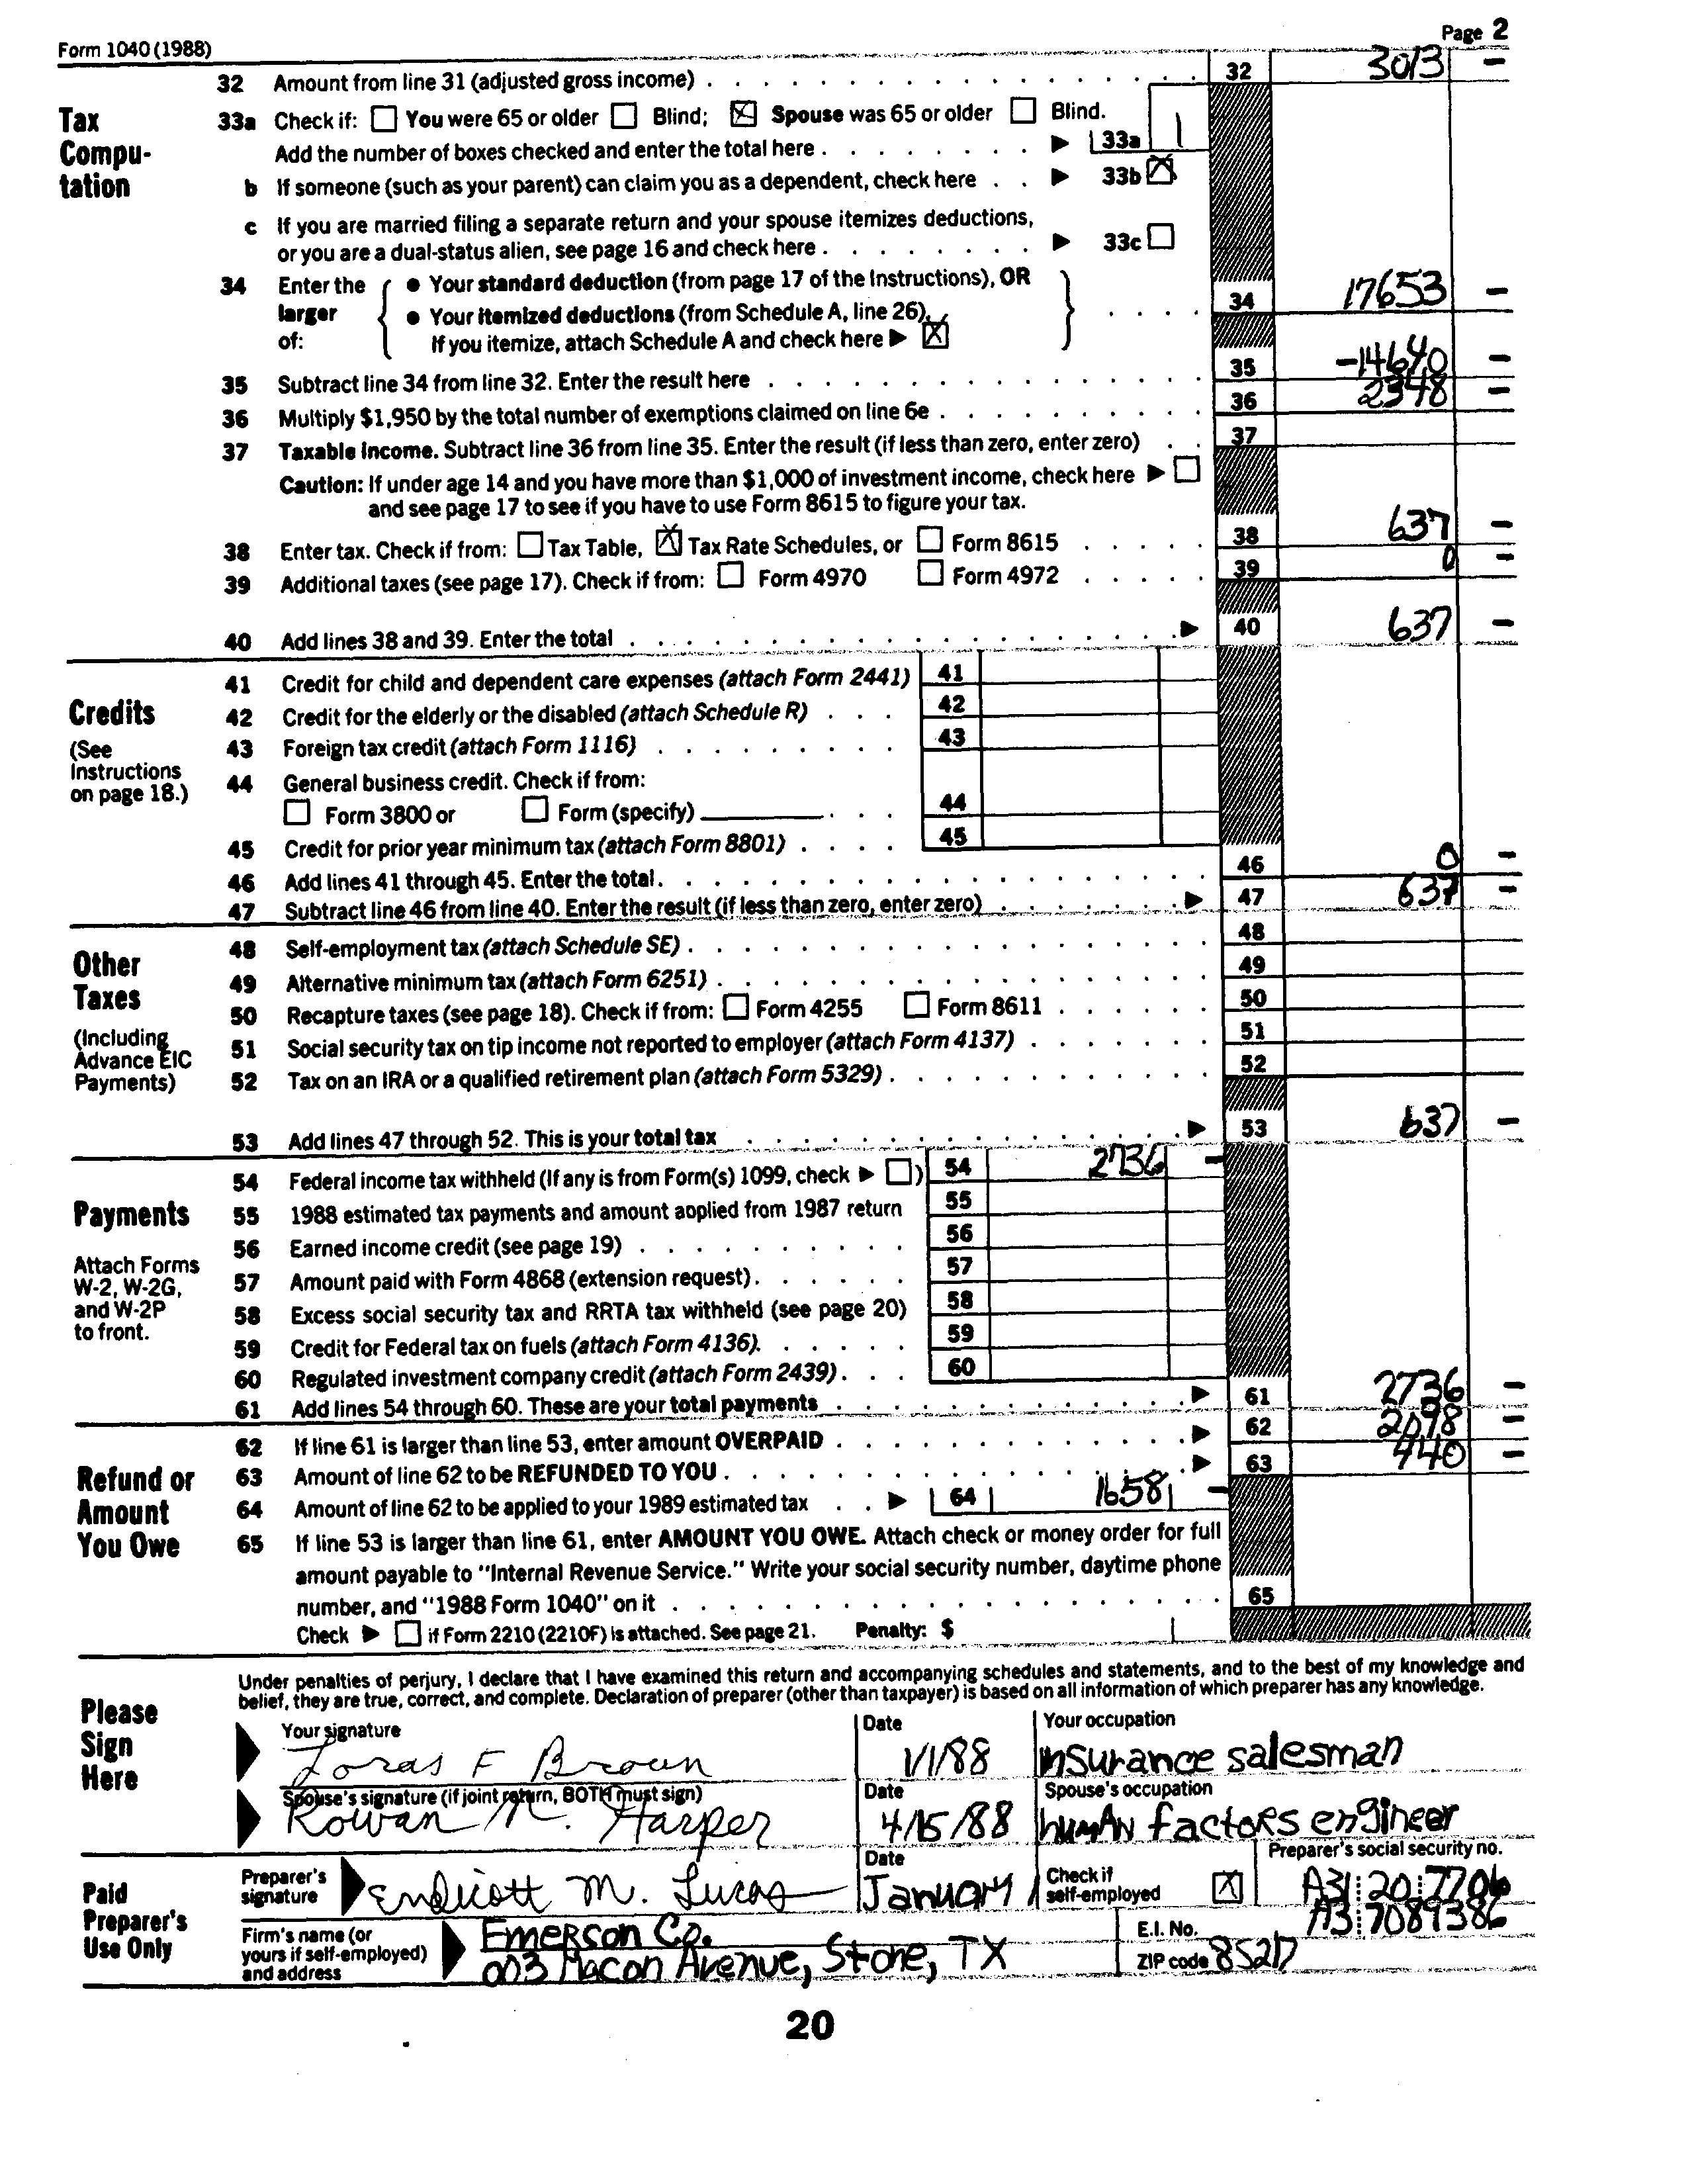 Form 1040 (1988) Page 2
32 Amount from line 31 (adjusted gross income) . . . 32 3013 –
Tax Compu-tation
33a Check if: You were 65 or older Blind; Spouse was 65 or older Blind.
Add the number of boxes checked and enter the total here . . . 33a 1
b If someone (such as your parent) can claim you as a dependent, check here . . 33b
c If you are married filing a separate return and your spouse itemizes deductions,
or you are a dual-status alien, see page 16 and check here . . . 33c
34 Enter the larger of:
• Your standard deduction (from page 17 of the Instructions), OR
• Your itemized deductions (from Schedule A, line 26).
If you itemize, attach Schedule A and check here
34 17653 –
35 Subtract line 34 from line 32. Enter the result here . . . 35 -14640 –
36 Multiply $1,950 by the total number of exemptions claimed on line 6e . . . 36 2348 –
37 Taxable income. Subtract line 36 from line 35. Enter the result (if less than zero, enter zero) . . 37
Caution: If under age 14 and you have more than $1,000 of investment income, check here
and see page 17 to see if you have to use Form 8615 to figure your tax.
38 Enter tax. Check if from: Tax Table, Tax Rate Schedules, or Form 8615 . . . 38 637 –
39 Additional taxes (see page 17). Check if from: Form 4970 Form 4972 . . . 39 0 –
40 Add lines 38 and 39. Enter the total . . . 40 637 –
Credits
(See Instructions on page 18.)
41 Credit for child and dependent care expenses (attach Form 2441) 41
42 Credit for the elderly or the disabled (attach Schedule R) . . . 42
43 Foreign tax credit (attach Form 1116) . . . 43
44 General business credit. Check if from:
Form 3800 or Form (specify) . . . 44
45 Credit for prior year minimum tax (attach Form 8801) . . . 45
46 Add lines 41 through 45. Enter the total . . . 46 0 –
47 Subtract line 46 from line 40. Enter the result (if less than zero, enter zero) . . . 47 637 –
Other Taxes
(Including Advance EIC Payments)
48 Self-employment tax (attach Schedule SE) . . . 48
49 Alternative minimum tax (attach Form 6251) . . . 49
50 Recapture taxes (see page 18). Check if from: Form 4255 Form 8611 . . . 50
51 Social security tax on tip income not reported to employer (attach Form 4137) . . . 51
52 Tax on an IRA or a qualified retirement plan (attach Form 5329) . . . 52
53 Add lines 47 through 52. This is your total tax . . . 53 637 –
Payments
Attach Forms W-2, W-2G, and W-2P to front.
54 Federal income tax withheld (If any is from Form(s) 1099, check ) 54 2736 –
55 1988 estimated tax payments and amount applied from 1987 return 55
56 Earned income credit (see page 19) . . . 56
57 Amount paid with Form 4868 (extension request) . . . 57
58 Excess social security tax and RRTA tax withheld (see page 20) 58
59 Credit for Federal tax on fuels (attach Form 4136). . . . 59
60 Regulated investment company credit (attach Form 2439) . . . 60
61 Add lines 54 through 60. These are your total payments . . . 61 2736 –
Refund or Amount You Owe
62 If line 61 is larger than line 53, enter amount OVERPAID . . . 62 2098 –
63 Amount of line 62 to be REFUNDED TO YOU . . . 63 440 –
64 Amount of line 62 to be applied to your 1989 estimated tax . . 64 1658 –
65 If line 53 is larger than line 61, enter AMOUNT YOU OWE. Attach check or money order for full
amount payable to "Internal Revenue Service." Write your social security number, daytime phone
number, and "1988 Form 1040" on it . . . 65
Check if Form 2210 (2210F) is attached. See page 21. Penalty: $
Please Sign Here
Under penalties of perjury, I declare that I have examined this return and accompanying schedules and statements, and to the best of my knowledge and
belief, they are true, correct, and complete. Declaration of preparer (other than taxpayer) is based on all information of which preparer has any knowledge.
Your signature Date Your occupation
Loras F Broun 1/1/88 insurance salesman
Spouse's signature (if joint return, BOTH must sign) Date Spouse's occupation
Rowan M. Harper 4/15/88 human factors engineer
Paid Preparer's Use Only
Preparer's signature Endicott M. Lucas Date January 1 Check if self-employed Preparer's social security no. A31 20 7706
Firm's name (or yours if self-employed) and address Emerson Co. E.I. No. A3 7089386
003 Macon Avenue, Stone, TX ZIP code 85217
20